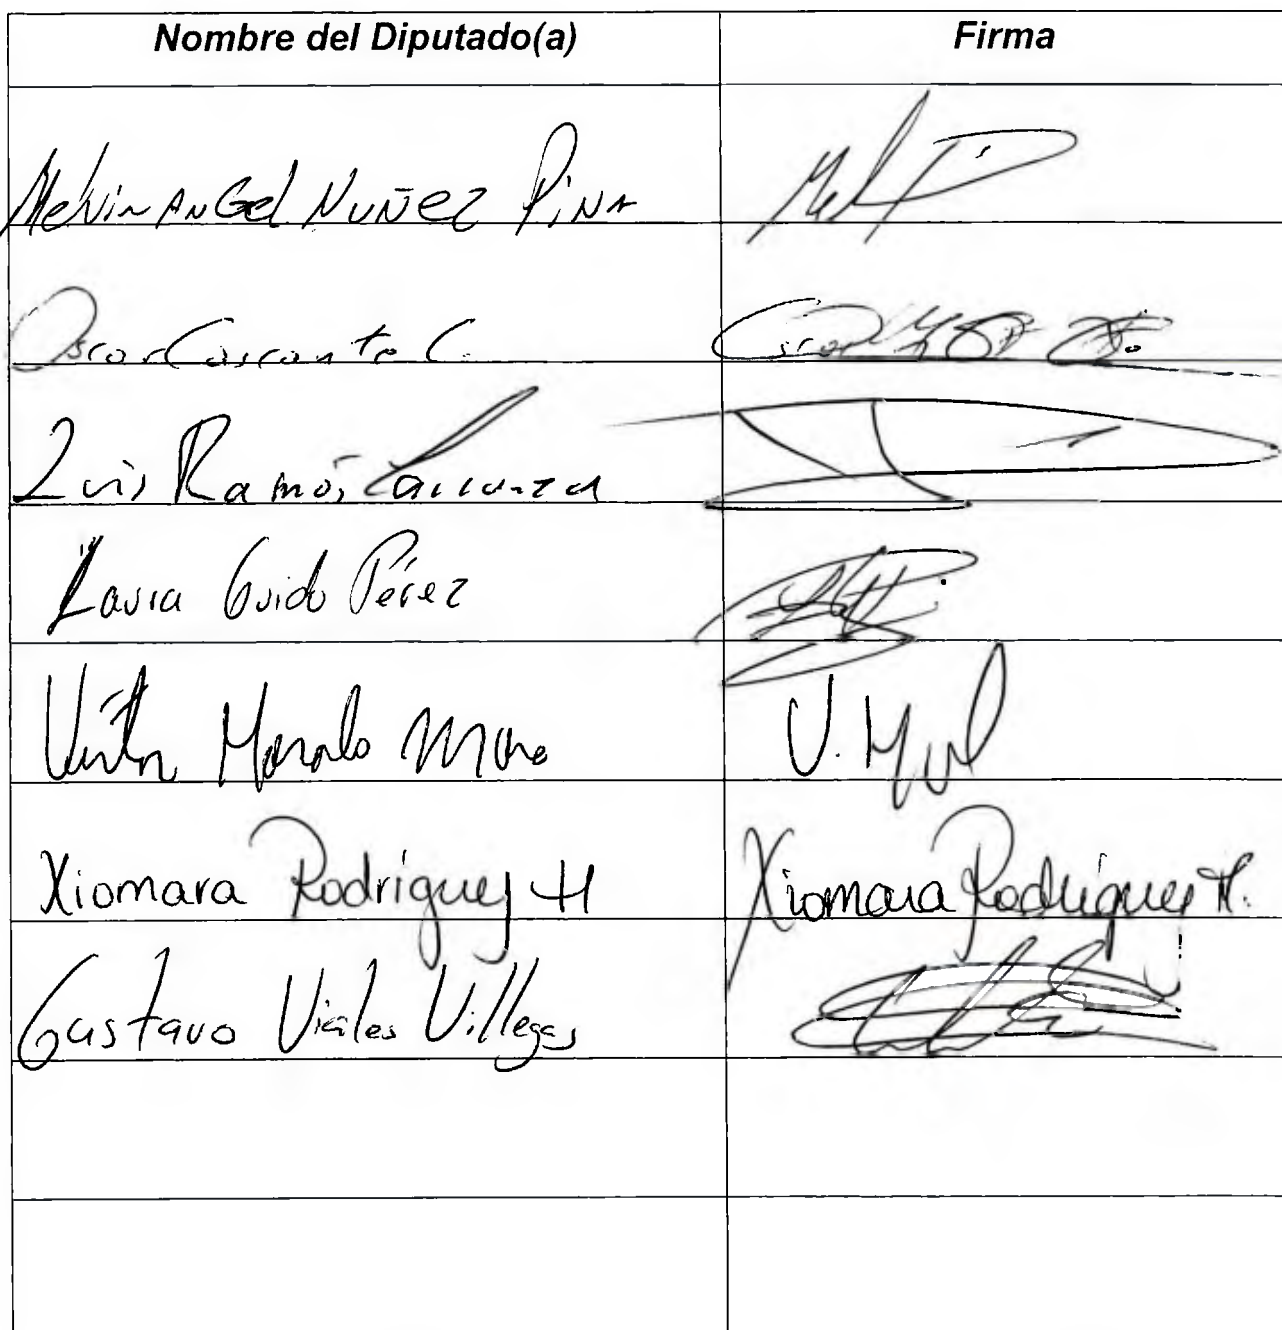 Nombre del Diputado(a) Firma
Melvin ANGel NUÑez PiNA
Oscar Cascante C.
Luis Ramón Carranza
Laura Guido Pérez
Víctor Morales Mora V. M
Xiomara Rodríguez H Xiomara Rodríguez H.
Gustavo Viales Villegas